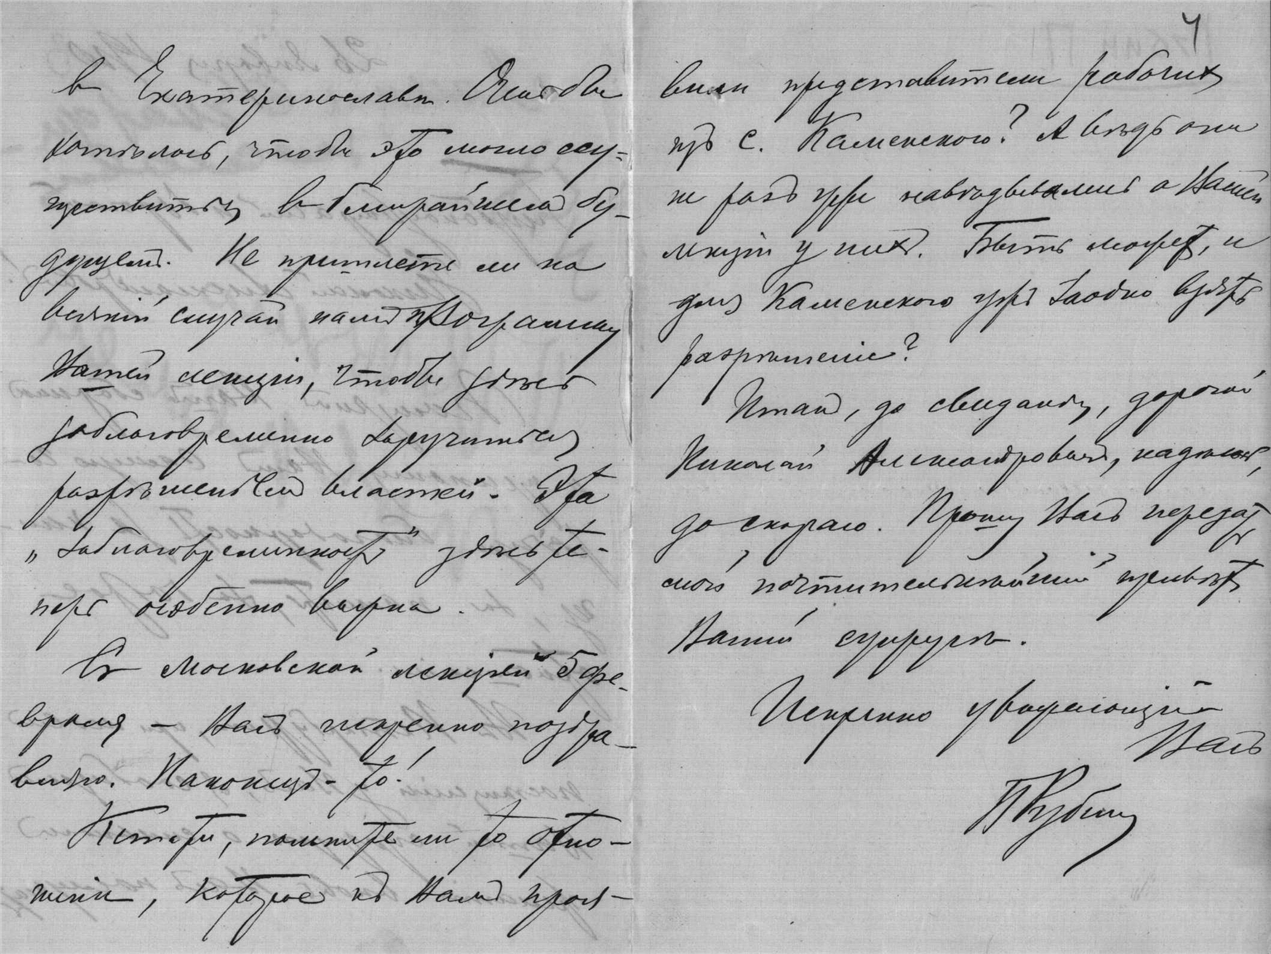 4
в Екатеринославѣ. Очень бы
хотѣлось, чтобы это могло осу-
ществиться въ ближайшемъ бу-
дущемъ. Не пришлете ли на
всякій случай намъ программу
Вашей лекціи, чтобы уже
заблаговременно заручиться
разрѣшеніемъ властей. Эта
„заблаговременность" здѣсь те-
перь особенно важна.
Съ московской лекціей 5 фе-
враля — Васъ искренно поздра-
вляю. Наконецъ-то!
Кстати, помните ли то отно-
шеніе, которое къ Вамъ проя-
вили представители рабочихъ
изъ с. Каменскаго? А вѣдь они
не разъ уже навѣдывались о Вашей
лекціи у нихъ. Быть можетъ, и
для Каменскаго ужъ заодно взять
разрѣшеніе?
Итакъ, до свиданья, дорогой
Николай Александровичъ, надѣюсь,
до скораго. Прошу Васъ передать
мой почтительнѣйшій привѣтъ
Вашей супругѣ.
Искренно уважающій
Васъ
П Рубин